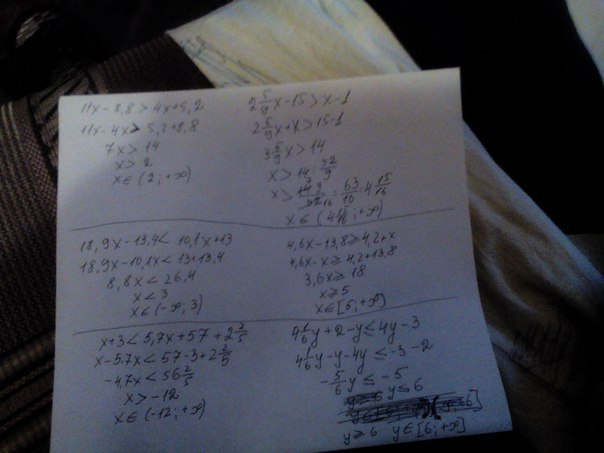 11x - 8,8 > 4x + 5,2
11x - 4x > 5,2 + 8,8
7x > 14
x > 2
x ∈ (2; +∞)
2 5/9 x - 15 > x - 1
2 5/9 x + x > 15 - 1
3 5/9 x > 14
x > 14 : 32/9
x > 14·9/32 = 63/16 = 4 15/16
x ∈ (4 15/16; +∞)
18,9x - 13,4 < 10,1x + 13
18,9x - 10,1x < 13 + 13,4
8,8x < 26,4
x < 3
x ∈ (-∞; 3)
4,6x - 13,8 ≥ 4,2 + x
4,6x - x ≥ 4,2 + 13,8
3,6x ≥ 18
x ≥ 5
x ∈ [5; +∞]
x + 3 < 5,7x + 57 + 2 2/5
x - 5,7x < 57 - 3 + 2 2/5
-4,7x < 56 2/5
x > -12
x ∈ (-12; +∞)
4 1/6 y + 2 - y ≤ 4y - 3
4 1/6 y - y - 4y ≤ -3 - 2
-5/6 y ≤ -5
y ≤ 6
y ≥ 6 y ∈ [6; +∞]